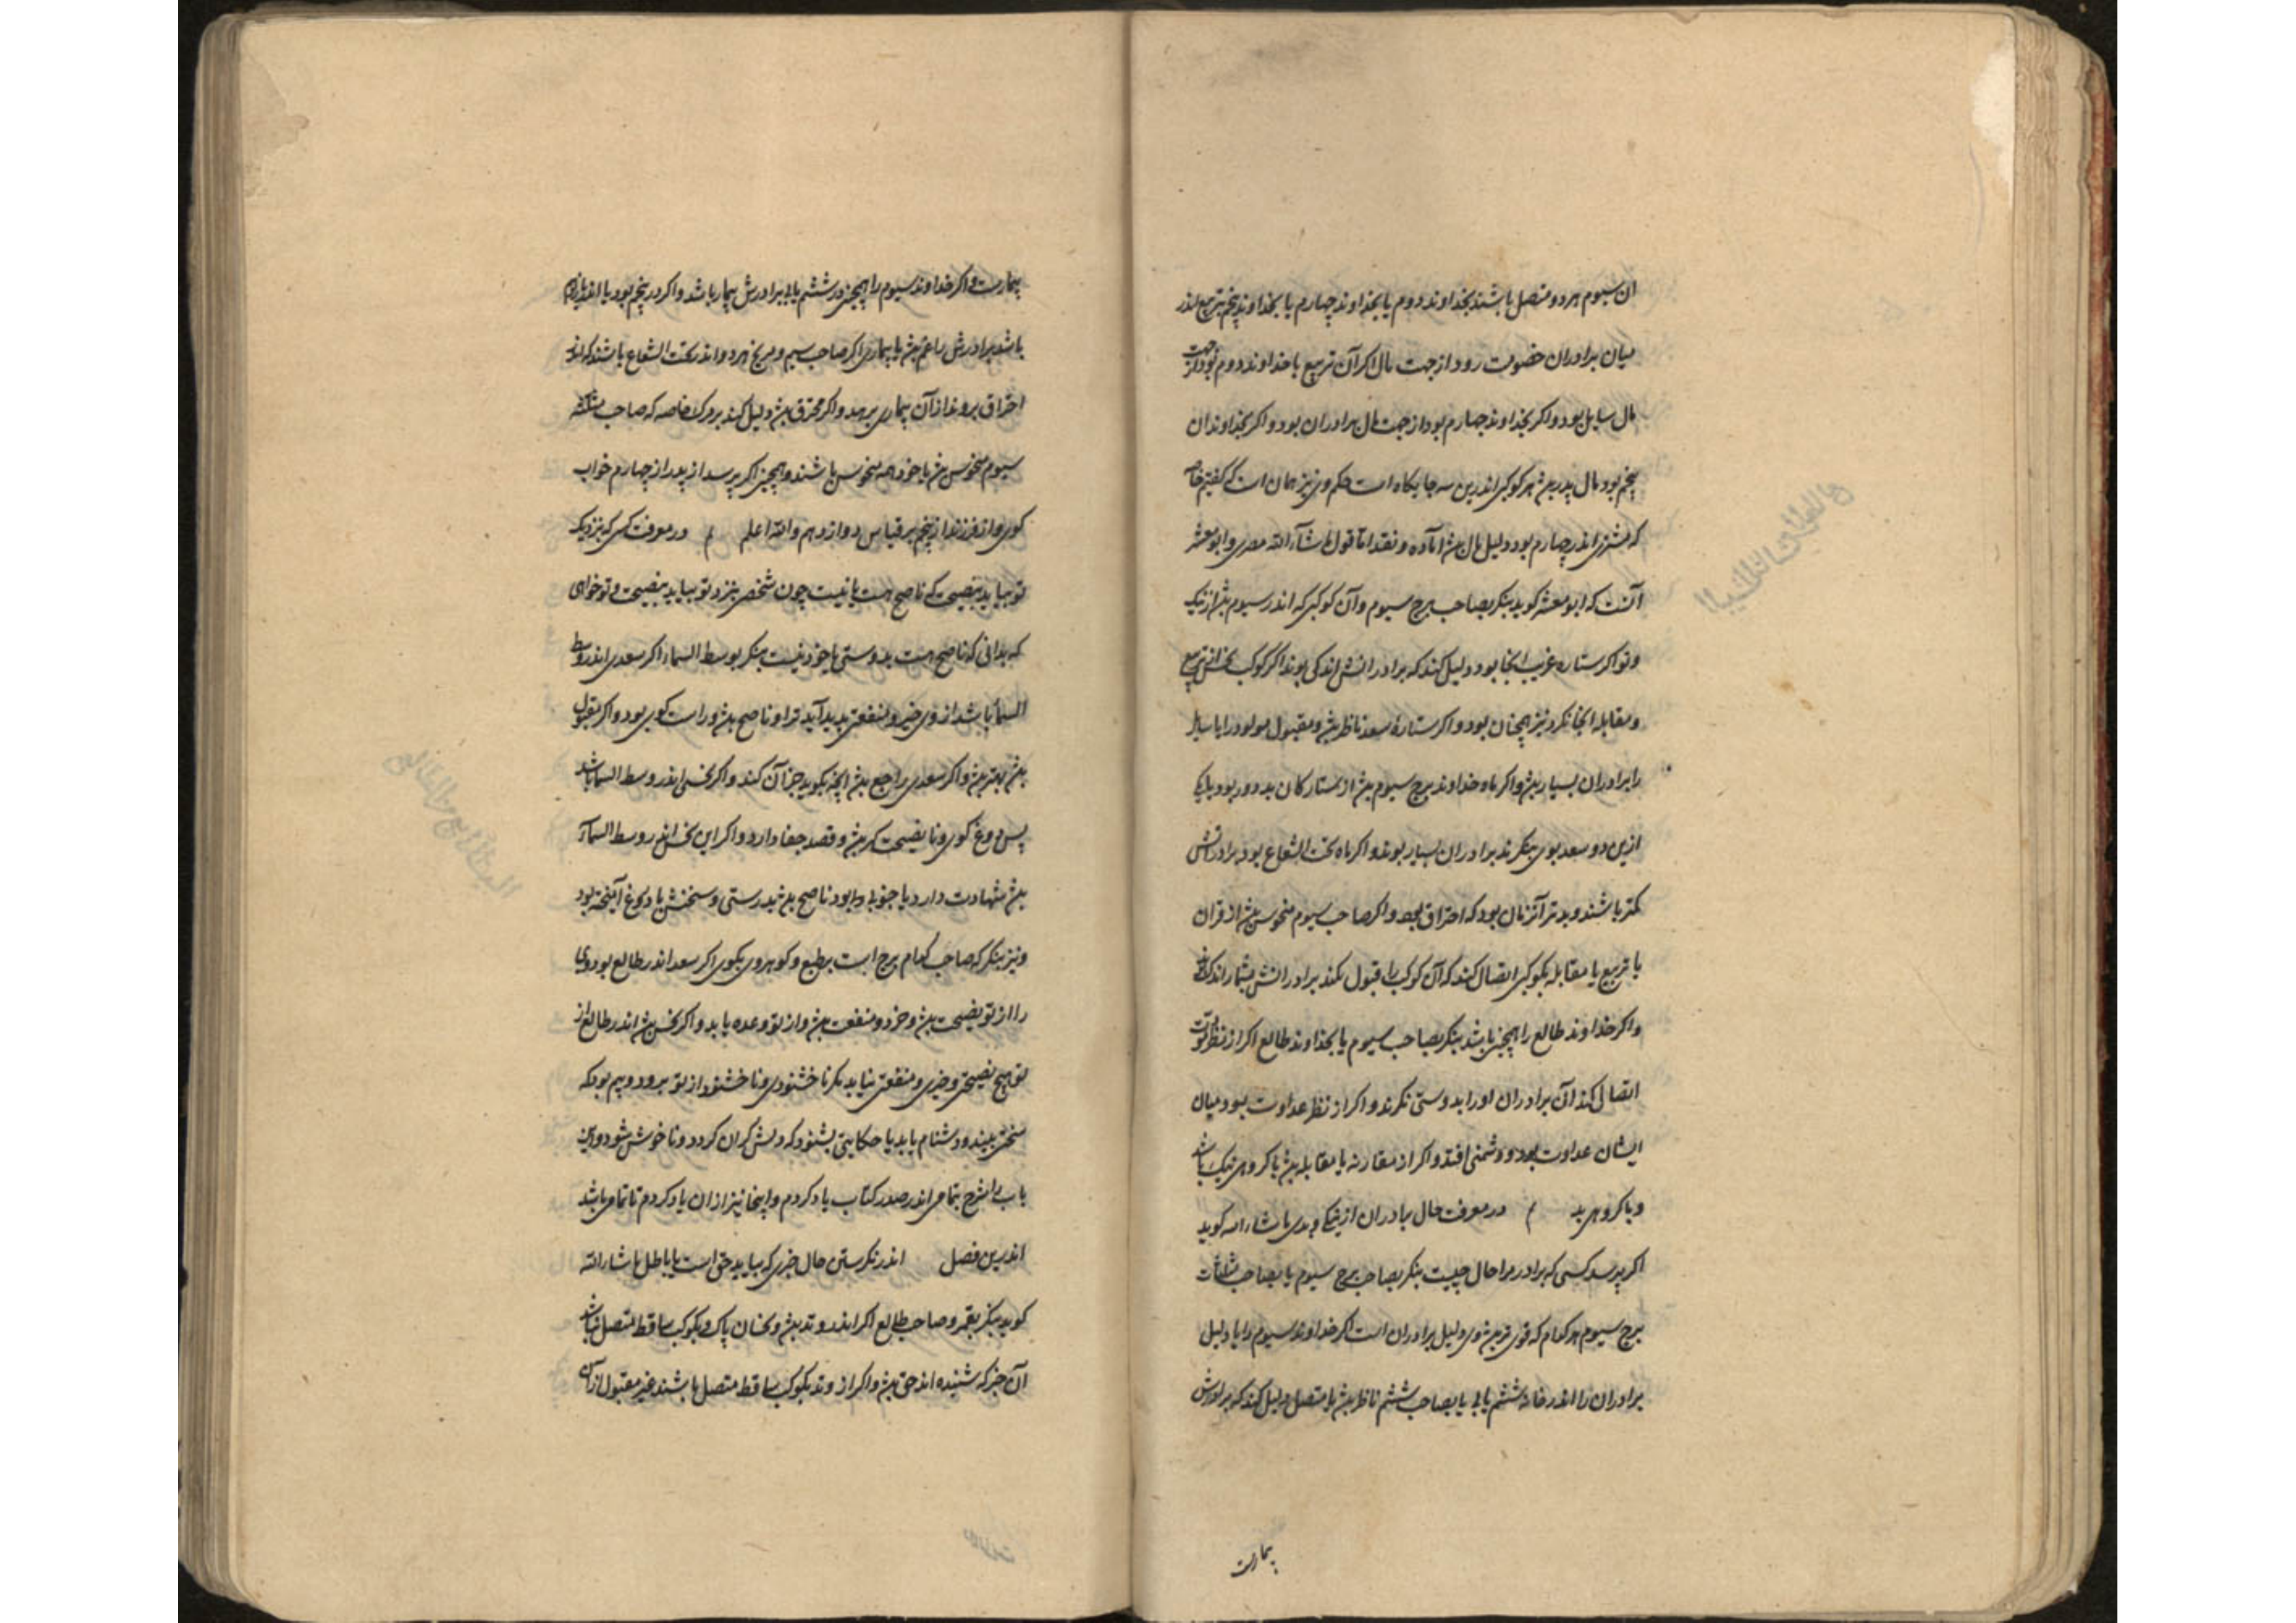 ان سیوم هر دو متصل باشند بخداوند دوم یا بخداوند چهارم یا بخداوند پنجم بتربیع اندر
میان برادران خصومت رود از جهت مال اکر آن تربیع با خداوند دوم بود از جهت
مال سایل بود و اکر بخداوند چهارم بود از جهت مال برادران بود و اکر بخداوندان
پنجم بود مال پدر بود هر کوکبی اندرین سه جایکاه است حکم وی نیز همان است که کفتیم خاصه
که مشتری اندر چهارم بود دلیل مال بود آماده و نقد اما قول ماشاء الله مصری و ابومعشر
آنست که ابومعشر کوید بنکر بصاحب برج سیوم و آن کوکبی که اندر سیوم بود از نیک
و تو اکر ستاره غریب آنجا بود دلیل کند که برادرانش اندکی بوند اکر کوکب نحس از تربیع
و مقابله آنجا نکرد نیز همچنان بود و اکر ستارهٔ سعد ناظر بود و مقبول مولود را یا سایل
را برادران بسیار بود و اکر ماه خداوند برج سیوم بود از ستارکان بد دور بود یا یکی
ازین دو سعد بوی بنکرند برادران بسیار بوند و اکر ماه تحت الشعاع بود برادرانش
کمتر باشند و بدتر آنزمان بود که احتراق بود و اکر صاحب سیوم منحوس بود از قران
یا تربیع یا مقابله بکوکبی اتصال کند که آن کوکب را قبول نکند برادرانش بیمار اندک
و اکر خداوند طالع را همچنین باشد بنکر بصاحب سیوم یا بخداوند طالع اکر از نظر مودت
اتصال کند آن برادران او را بدوستی نکرند و اکر از نظر عداوت بود میان
ایشان عداوت بود و دشمنی افتد و اکر از مقارنه یا مقابله بود با کروهی نیک باشد
و با کروهی بد م در معرفت حال برادران از نیکی و بدی ماشاء الله کوید
اکر پرسد کسی که برادر مرا حال چیست بنکر بصاحب برج سیوم یا بصاحب مثلثات
برج سیوم هر کدام که قوی تر بود وی دلیل برادران است اکر خداوند سیوم را یا دلیل
برادران را اندر خانه ششم یابی یا بصاحب ششم ناظر بود یا متصل دلیل کند که برادرش
بیمارست
بیمارست و اکر خداوند سیوم را همچنین در ششم یابی برادرش بیمار باشد و اکر در پنجم بود یا اندر یازدهم
باشد برادرش را غم بود یا بیماری اکر صاحب سیم و مریخ هر دو اندر تحت الشعاع باشند که از
احتراق بروند از آن بیماری برهد و اکر محترق بود دلیل کند بر مرک خاصه که صاحب مثلثه
سیوم منحوس بود یا خود همه منحوس باشند و همچنین اکر پرسد از پدر از چهارم جواب
کوی و از فرزند از پنجم بر قیاس دوازدهم والله اعلم م در معرفت کسی که بنزدیک
تو بیاید بنصیحت که ناصح هست یا نیست چون شخصی بنزد تو بیاید بنصیحت و تو خواهی
که بدانی که ناصح هست بدوستی یا خود نیست بنکر بوسط السماء اکر سعدی اندر وسط
السماء باشد از وی خیر و منفعتی پدید آید ترا و ناصح بود و راست کوی بود و اکر مقبول
بود بهتر بود و اکر سعدی راجع بود آنچه بکوید جز آن کند و اکر نحسی اندر وسط السما باشد
پس دروغ کوی و نا نصیحت کر بود و قصد جفا دارد و اکر این نحس اندر وسط السماء
بود شهادت دارد یا خود او را بود ناصح بود بدرستی و سخنش با دروغ آمیخته بود
و نیز بنکر که صاحب کدام برج است بر طبع و کوهر وی بکوی اکر سعد اندر طالع بود وی
را از تو نصیحت بود و خرد و منفعت بود و از تو وعده یابد و اکر نحس بود اندر طالع از
تو هیچ نصیحتی و خیری و منفعتی نیابد مکر ناخشنودی و ناخشنود از تو برود و بیم بود که
سختی بیند و دشنام یابد یا حکایتی بشنود که دلش کران کردد و ناخوش شود و این
باب را شرح بتمامی اندر صدر کتاب یاد کردم و اینجا نیز از ان یاد کردم تا تمام باشد
اندرین فصل اندر نکرستن حال خبری که بیاید حق است یا باطل ماشاء الله
کوید بنکر بقمر و صاحب طالع اکر اندر وتد بود و نحسان پاک و بکوکب ساقط متصل نباشد
آن خبر که شنیده اند حق بود و اکر از وتد بکوکب ساقط متصل باشند غیر مقبول از آن